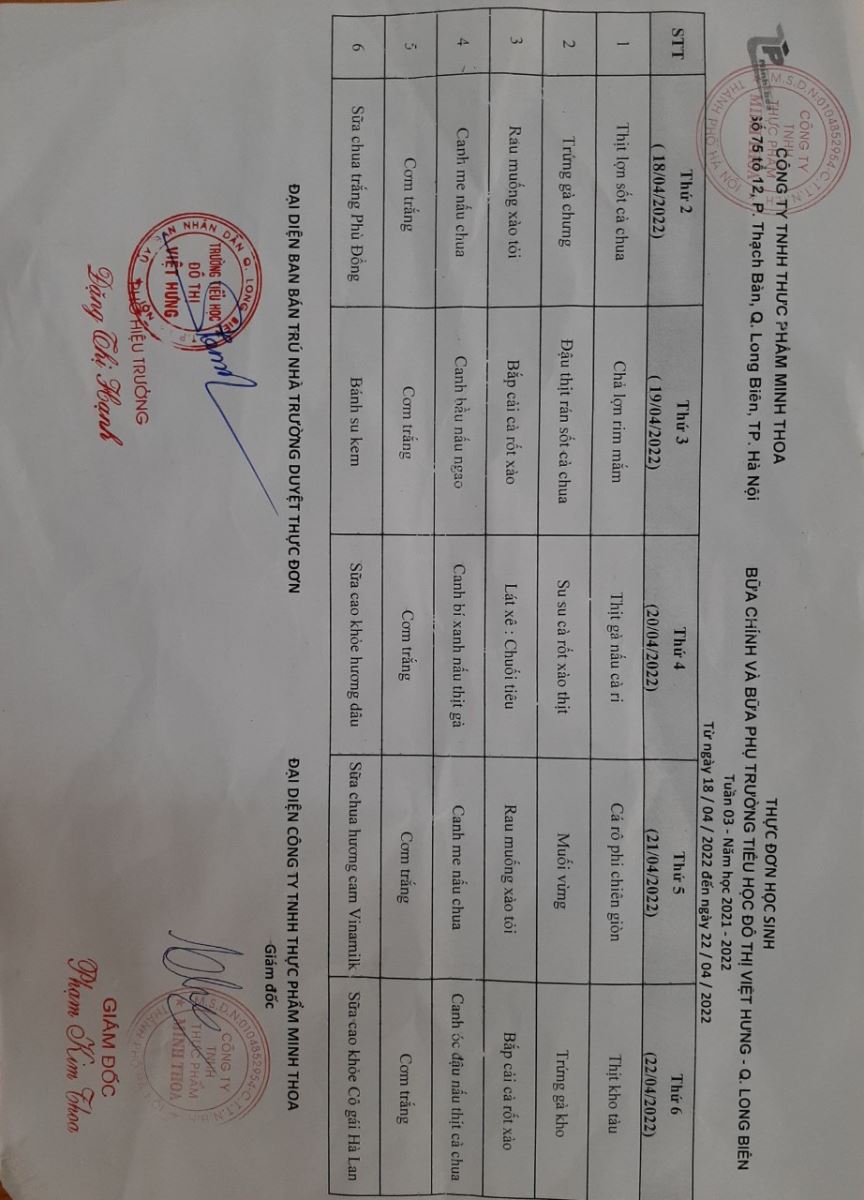 CÔNG TY TNHH THỰC PHẨM MINH THOA
Số 75 tổ 12, P. Thạch Bàn, Q. Long Biên, TP. Hà Nội
THỰC ĐƠN HỌC SINH
BỮA CHÍNH VÀ BỮA PHỤ TRƯỜNG TIỂU HỌC ĐÔ THỊ VIỆT HƯNG - Q. LONG BIÊN
Tuần 03 - Năm học 2021 - 2022
Từ ngày 18 / 04 / 2022 đến ngày 22 / 04 / 2022
STT Thứ 2 Thứ 3 Thứ 4 Thứ 5 Thứ 6
( 18/04/2022) ( 19/04/2022) (20/04/2022) (21/04/2022) (22/04/2022)
1 Thịt lợn sốt cà chua Chả lợn rim mắm Thịt gà nấu cà ri Cá rô phi chiên giòn Thịt kho tàu
2 Trứng gà chưng Đậu thịt rán sốt cà chua Su su cà rốt xào thịt Muối vừng Trứng gà kho
3 Rau muống xào tỏi Bắp cải cà rốt xào Lát xê : Chuối tiêu Rau muống xào tỏi Bắp cải cà rốt xào
4 Canh me nấu chua Canh bầu nấu ngao Canh bí xanh nấu thịt gà Canh me nấu chua Canh óc đậu nấu thịt cà chua
5 Cơm trắng Cơm trắng Cơm trắng Cơm trắng Cơm trắng
6 Sữa chua trắng Phù Đổng Bánh su kem Sữa cao khỏe hương dâu Sữa chua hương cam Vinamilk Sữa cao khỏe Cô gái Hà Lan
ĐẠI DIỆN BAN BÁN TRÚ NHÀ TRƯỜNG DUYỆT THỰC ĐƠN
ĐẠI DIỆN CÔNG TY TNHH THỰC PHẨM MINH THOA
Giám đốc
TRƯỜNG TIỂU HỌC
ĐÔ THỊ
VIỆT HƯNG
PHÓ HIỆU TRƯỞNG
Đặng Thị Hạnh
M.S.D.N:0104852954-C.T.T.N.H.H
CÔNG TY
TNHH
THỰC PHẨM
MINH THOA
GIÁM ĐỐC
Phạm Kim Thoa